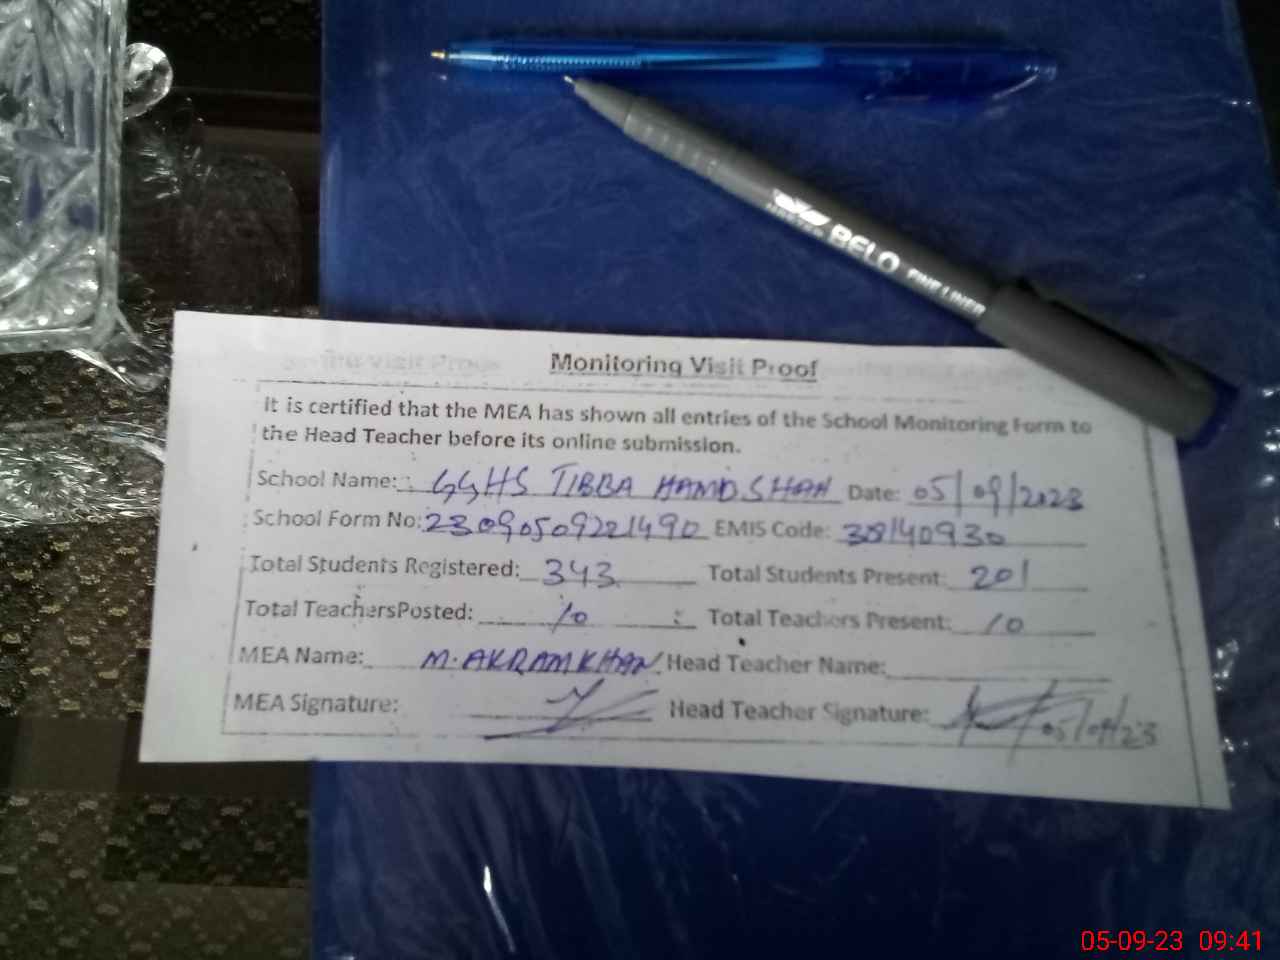 MASTER
BELO FINE LINER
Monitoring Visit Proof
It is certified that the MEA has shown all entries of the School Monitoring Form to
the Head Teacher before its online submission.
School Name: GGHS TIBBA HAMD SHAH Date: 05/09/2023
School Form No: 23090509221490 EMIS Code: 38140930
Total Students Registered: 343 Total Students Present: 201
Total TeachersPosted: 10 Total Teachers Present: 10
MEA Name: M. AKRAM KHAN Head Teacher Name:
MEA Signature: Head Teacher Signature: 05/09/23
05-09-23 09:41